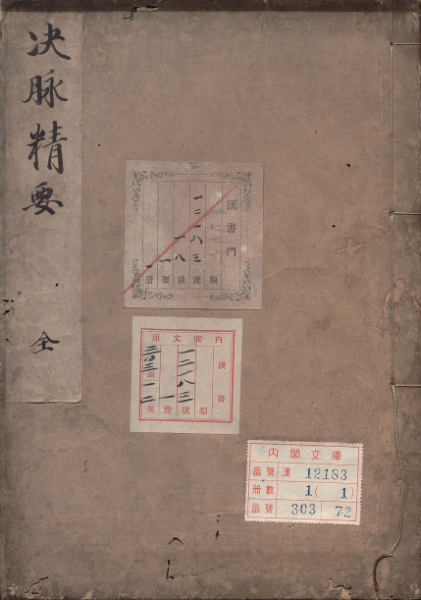 决脉精要
全
漢書門
一二一八三
一八
一
類 號 函 架 冊
內閣文庫
漢書
一二一八三
一
三〇三
一二
類 號 冊 架
内閣文庫
番號 漢 12183
冊數 1 ( 1 )
函號 303 72